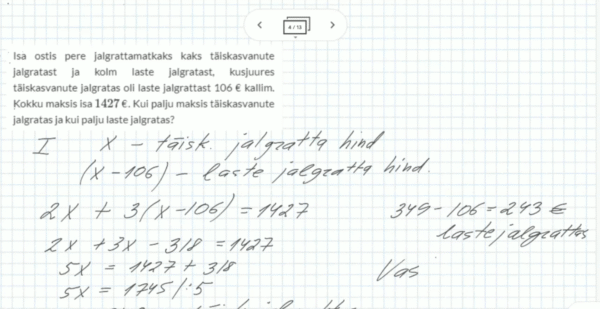 4 / 13
Isa ostis pere jalgrattamatkaks kaks täiskasvanute
jalgratast ja kolm laste jalgratast, kusjuures
täiskasvanute jalgratas oli laste jalgrattast 106 € kallim.
Kokku maksis isa 1427 €. Kui palju maksis täiskasvanute
jalgratas ja kui palju laste jalgratas?
I x – täisk. jalgratta hind
(x – 106) – laste jalgratta hind.
2x + 3(x – 106) = 1427
2x + 3x – 318 = 1427
5x = 1427 + 318
5x = 1745 / : 5
349 – 106 = 243 €
laste jalgrattas
Vas